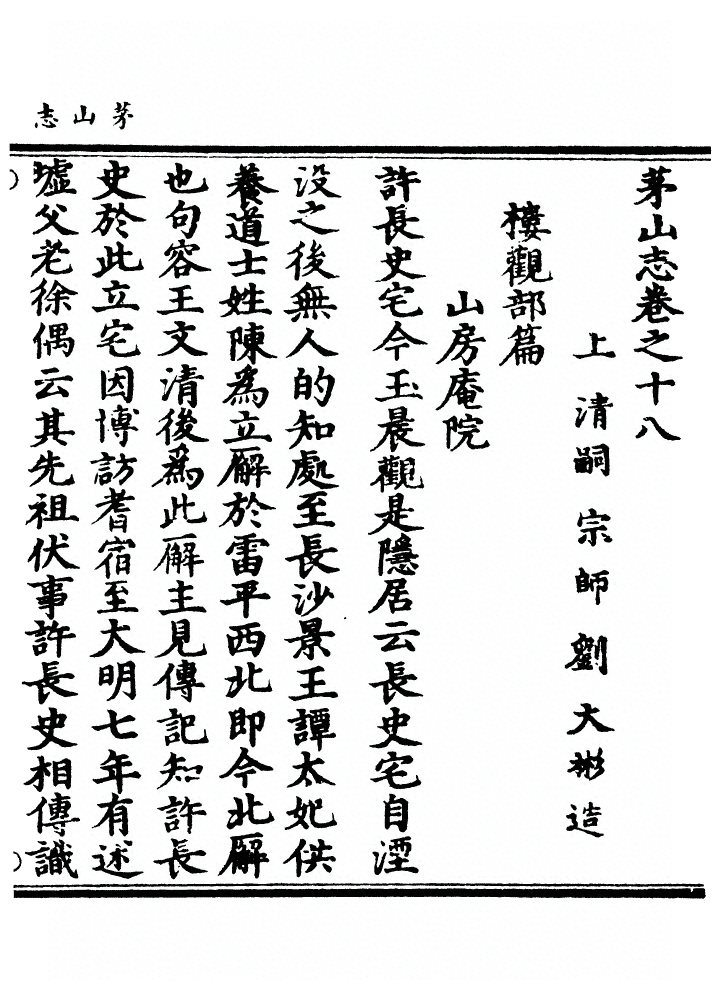 茅山志
茅山志卷之十八
上清嗣宗師劉大彬造
樓觀部篇
山房庵院
許長史宅今玉晨觀是隱居云長史宅自湮
没之後無人的知處至長沙景王譚太妃供
養道士姓陳為立廨於雷平西北即今北廨
也句容王文清後為此廨主見傳記知許長
史於此立宅因博訪耆宿至大明七年有述
墟父老徐偶云其先祖伏事許長史相傳識